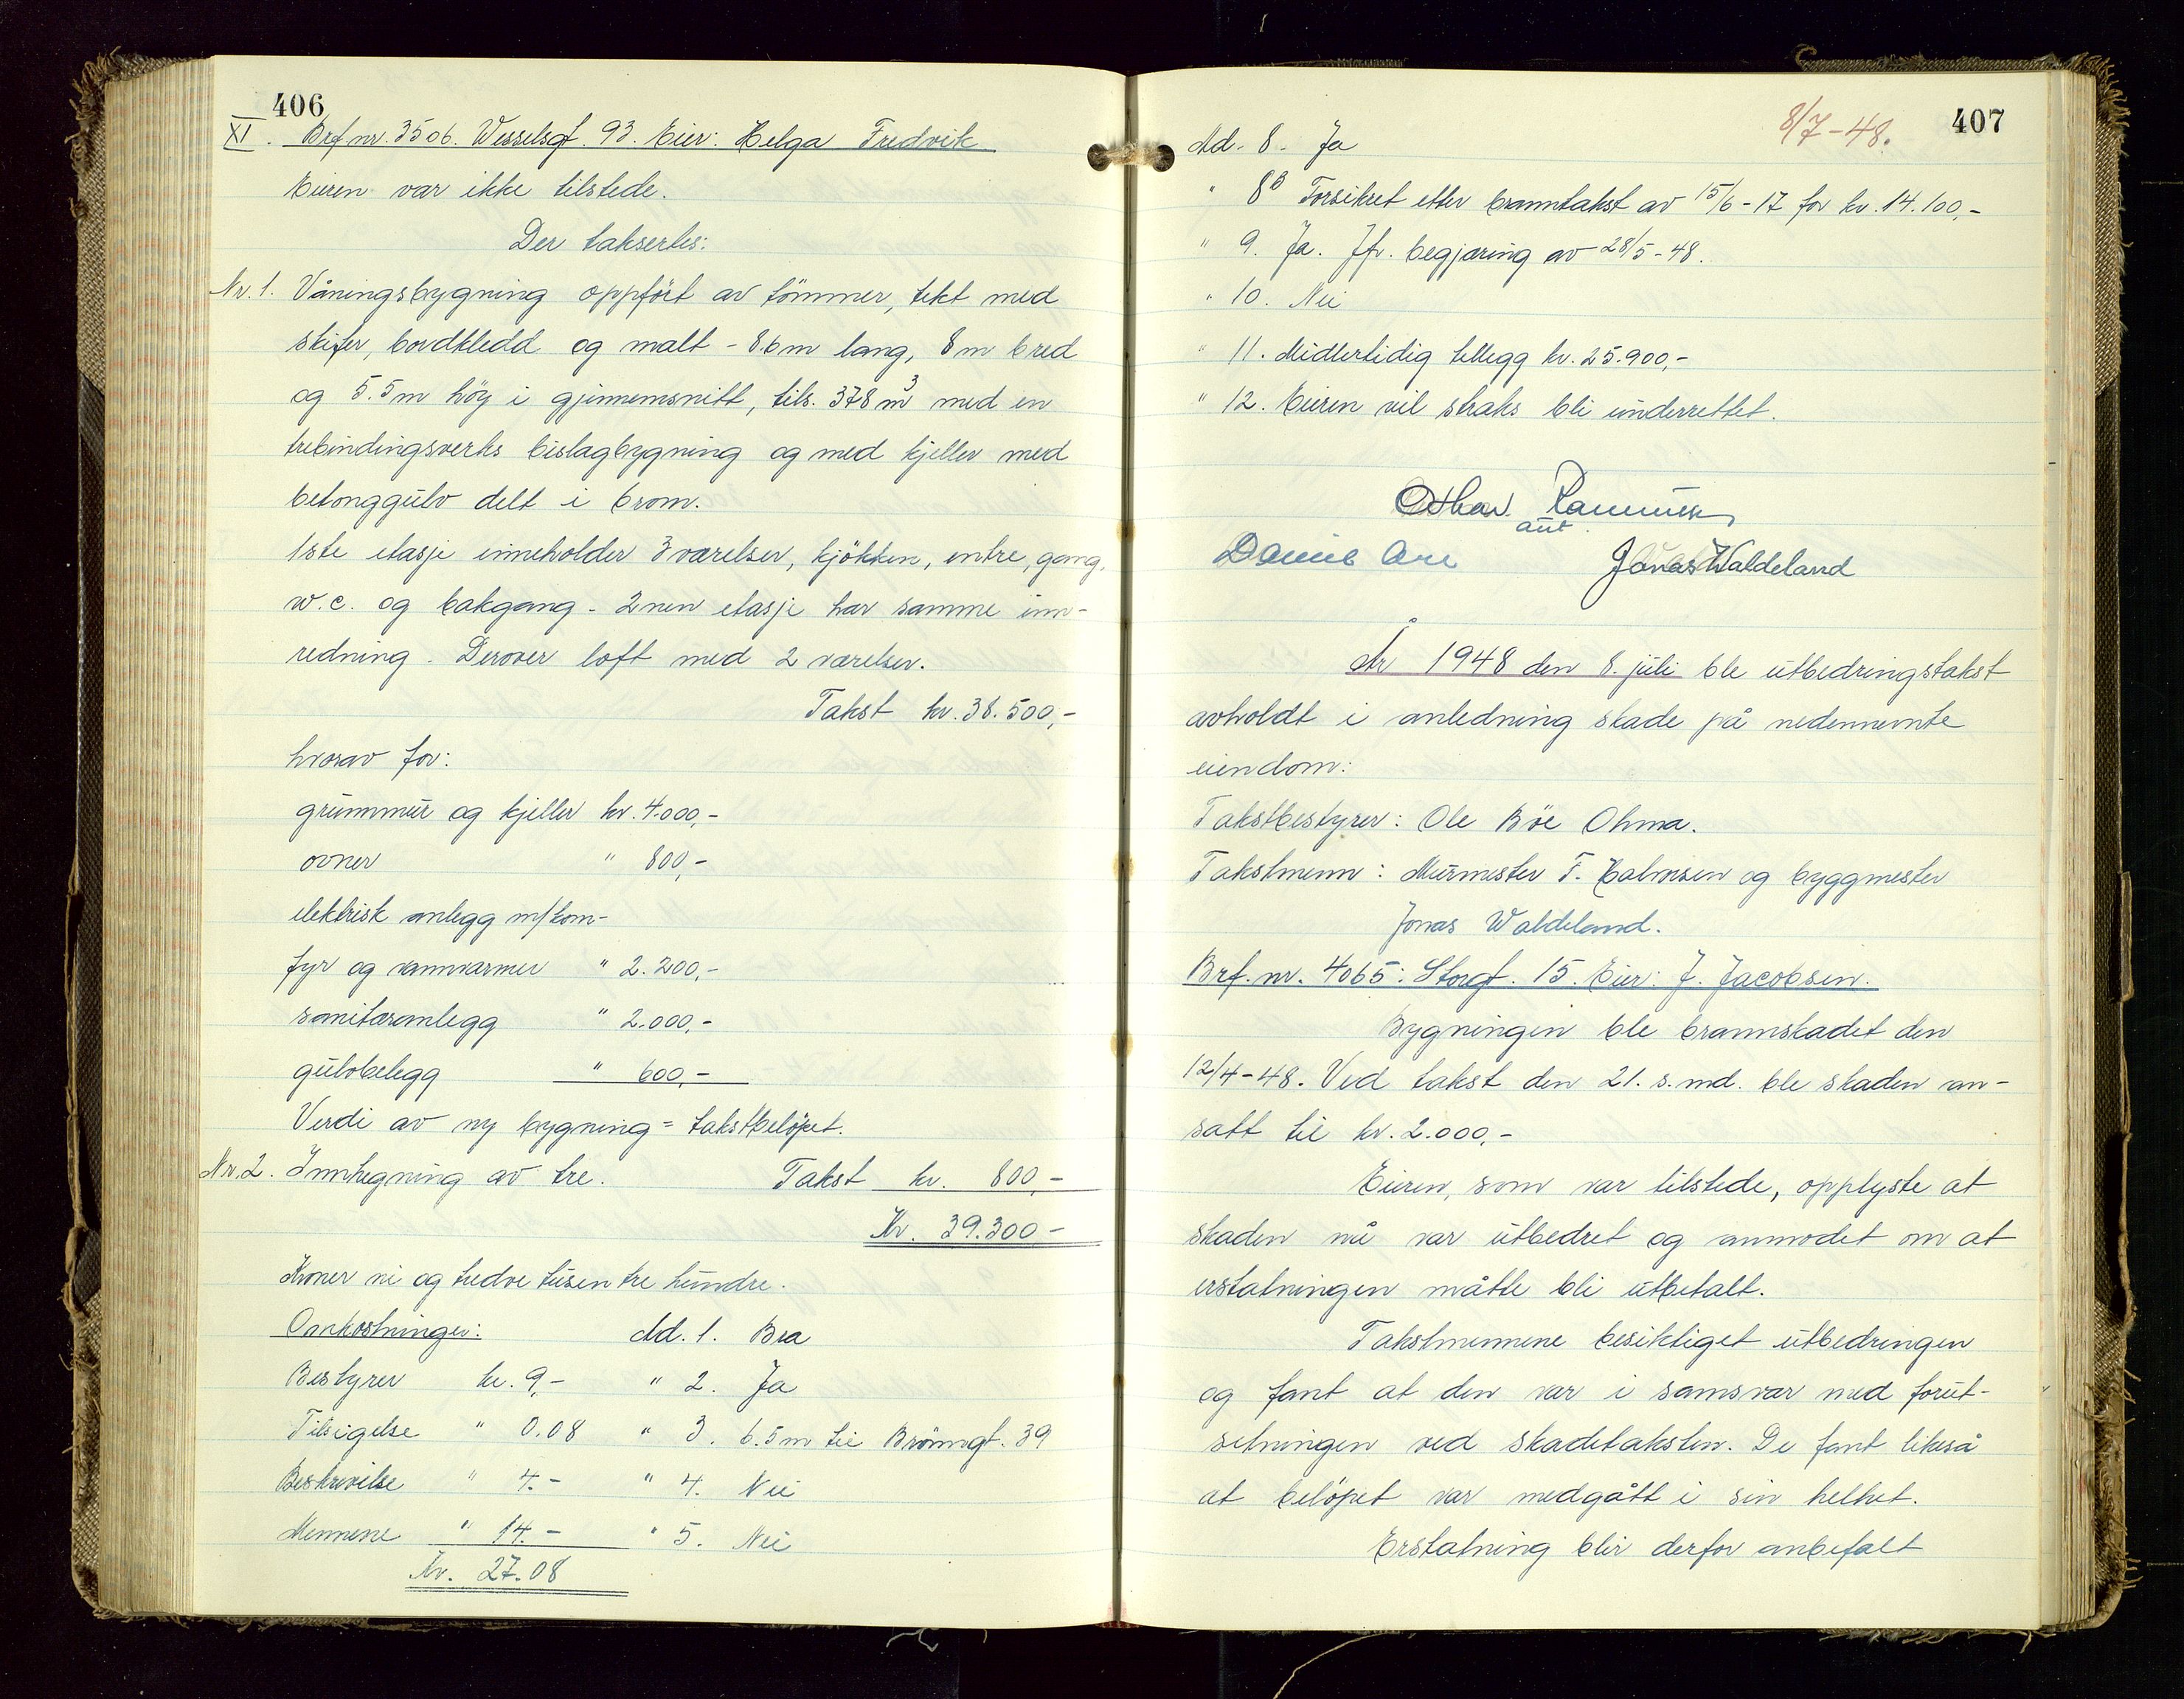 406
XI. Brf nr. 3506. Wesselsgt. 93. Eier: Helga Fredvik
Eieren var ikke tilstede.
Der taksertes:
Nr. 1. Våningsbygning oppført av tømmer, tekt med
skifer, bordkledd og malt - 8.6 m lang, 8 m bred
og 5.5 m høy i gjennemsnitt, tils. 378 m³ med en
trebindingsverks bislagbygning og med kjeller med
betonggulv delt i 6 rom.
1ste etasje inneholder 3 værelser, kjøkken, entre, gang,
w.c. og bakgang - 2nen etasje har samme inn-
redning. Derover loft med 2 værelser.
Takst kr. 38.500,-
hvorav for:
grunnmur og kjeller kr. 4.000,-
ovner " 800,-
elektrisk anlegg m/kom-
fyr og vannvarmer " 2.200,-
sanitæranlegg " 2.000,-
gulvbelegg " 600,-
Verdi av ny bygning = takstbeløpet.
Nr. 2. Innhegning av tre. Takst kr. 800,-
Kr. 39.300-
Kroner ni og tredve tusen tre hundre.
Omkostninger: Ad. 1. Bra
Bestyrer kr. 9,- " 2. Ja
Tilsigelse " 0.08 " 3. 6.5 m til Brønngt. 39
Beskrivelse " 4.- " 4. Nei
Mennene " 14.- " 5. Nei
Kr. 27.08
8/7-48. 407
Ad. 8. Ja
" 8B Forsikret etter branntakst av 15/6-17 for kr. 14.100,-
" 9. Ja. Jfr. begjæring av 28/5-48.
" 10. Nei
" 11. Midlertidig tillegg kr. 25.900,-
" 12. Eieren vil straks bli underrettet.
aut.
Jonas Waldeland
År 1948 den 8. juli ble utbedringstakst
avholdt i anledning skade på nedennevnte
eiendom:
Takstbestyrer: Ole Bøe Ohma.
Takstmenn: Murmester F. Halvorsen og byggmester
Jonas Waldeland.
Brf. nr. 4065: Storgt. 15. Eier: J. Jacobsen.
Bygningen ble brannskadet den
12/4-48. Ved takst den 21. s. md. ble skaden an-
satt til kr. 2.000,-
Eieren, som var tilstede, opplyste at
skaden nå var utbedret og anmodet om at
erstatningen måtte bli utbetalt.
Takstmennene besiktiget utbedringen
og fant at den var i samsvar med forut-
setningen ved skadetaksten. De fant likeså
at beløpet var medgått i sin helhet.
Erstatning blir derfor anbefalt